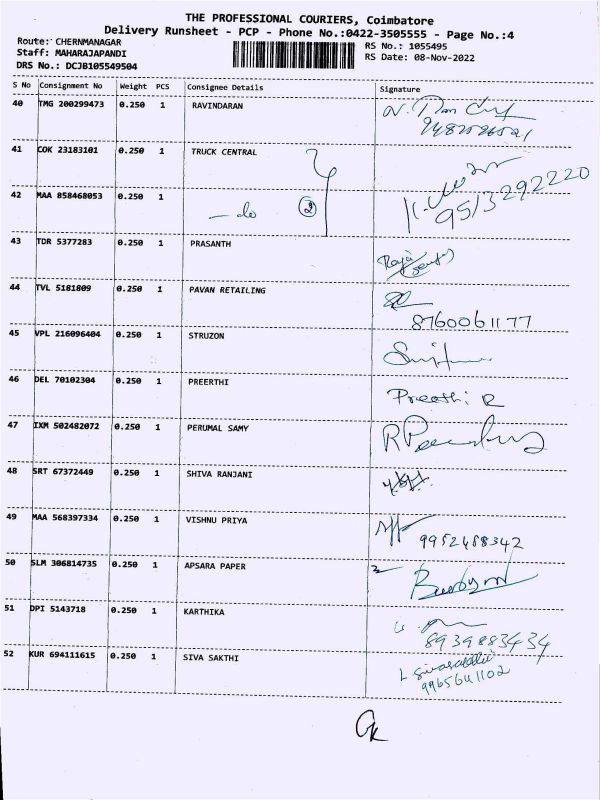 THE PROFESSIONAL COURIERS, Coimbatore
Delivery Runsheet - PCP - Phone No.:0422-3505555 - Page No.:4
Route: CHERNMANAGAR
Staff: MAHARAJAPANDI
DRS No.: DCJB105549504
RS No.: 1055495
RS Date: 08-Nov-2022
S No Consignment No Weight PCS Consignee Details Signature
40 TMG 200299473 0.250 1 RAVINDARAN
41 COK 23183101 0.250 1 TRUCK CENTRAL
42 MAA 858468053 0.250 1 - do 2 9513292220
43 TDR 5377283 0.250 1 PRASANTH Raja
44 TVL 5181809 0.250 1 PAVAN RETAILING
8760061177
45 VPL 216096404 0.250 1 STRUZON
46 DEL 70102304 0.250 1 PREERTHI Preethi R
47 IXM 502482072 0.250 1 PERUMAL SAMY
48 SRT 67372449 0.250 1 SHIVA RANJANI
49 MAA 568397334 0.250 1 VISHNU PRIYA 9952488342
50 SLM 306814735 0.250 1 APSARA PAPER
51 DPI 5143718 0.250 1 KARTHIKA
8939883434
52 KUR 694111615 0.250 1 SIVA SAKTHI L Sivasakthi
9965641102